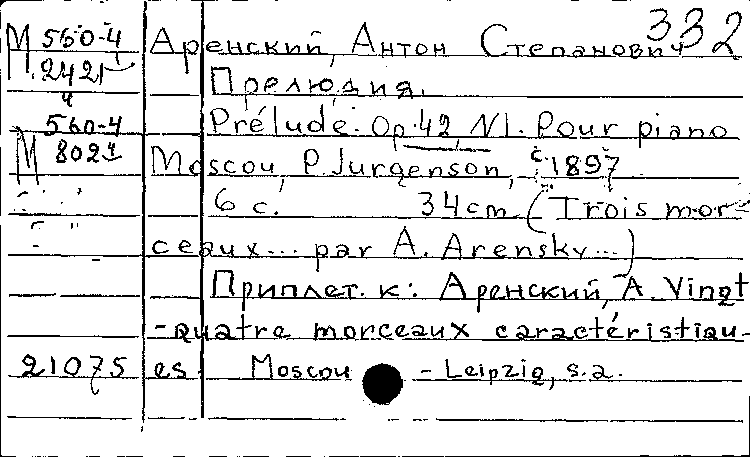 332
М 560-4 Аренский, Антон Степанович
2421 Прелюдия.
и
560-4 Prélude. Op.42, N1. Pour piano
М 8021 Moscou, P. Jurgenson, c. 1897
6 с. 34 cm (Trois mor-
ceaux... par A. Arensky...)
Приплет. к: Аренский, А. Vingt
-quatre morceaux caractéristiqu-
21075 es Moscou - Leipzig, s.a.